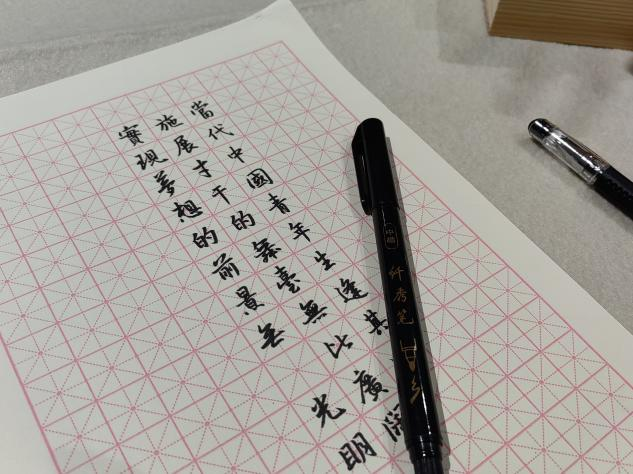 當代中國青年生逢其
施展才干的舞臺無比廣闊
實現夢想的前景無光明
中楷
纤秀笔